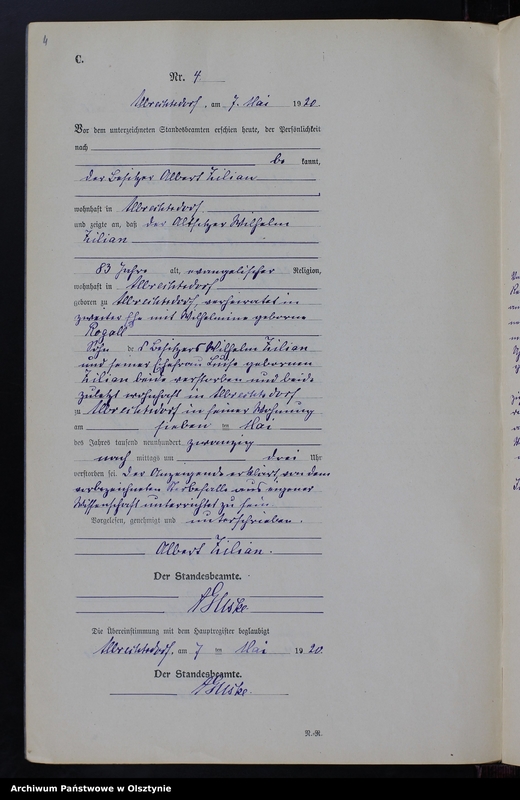 4
C.
Nr. 4
Albrechtsdorf, am 7. Mai 1920.
Vor dem unterzeichneten Standesbeamten erschien heute, der Persönlichkeit
nach
be kannt,
der Besitzer Albert Zilian
wohnhaft in Albrechtsdorf
und zeigte an, daß der Altsitzer Wilhelm
Zilian
83 Jahre alt, evangelischer Religion,
wohnhaft in Albrechtsdorf
geboren zu Albrechtsdorf, verheiratet in
zweiter Ehe mit Wilhelmine geborne
Rogall
Sohn des Besitzers Wilhelm Zilian
und seiner Ehefrau Luise gebornen
Zilian beide verstorben und beide
zuletzt wohnhaft in Albrechtsdorf
zu Albrechtsdorf in seiner Wohnung
am sieben ten Mai
des Jahres tausend neunhundert zwanzig
nach mittags um drei Uhr
verstorben sei. Der Anzeigende erklärt, von dem
vorbezeichneten Sterbefalle aus eigener
Wissenschaft unterrichtet zu sein.
Vorgelesen, genehmigt und unterschrieben.
Albert Zilian.
Der Standesbeamte.
Die Übereinstimmung mit dem Hauptregister beglaubigt
Albrechtsdorf, am 7 ten Mai 1920
Der Standesbeamte.
N.-R.
Archiwum Państwowe w Olsztynie